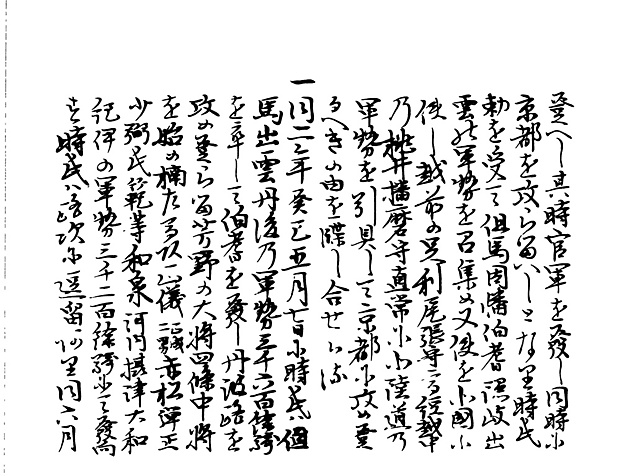 登へし其時官軍を發し同時に
京都を攻らるへしとなり時氏
勅を受て但馬因幡伯耆隠岐出
雲の軍勢を召集め又使を北國に
使し越前の足利尾張守高經越中
乃桃井播磨守直常に北陸道乃
軍勢を引具して京都に攻め登
るへきの由を牒し合せらる
一同二年癸巳五月七日に時氏ハ但
馬出雲丹後乃軍勢三千六百餘騎
を率して伯耆を發し丹波路を
攻め登らる吉野の大将四條中将
を始め楠左馬頭正儀赤松弾正
少弼氏範等和泉河内摂津大和
紀伊の軍勢三千二百餘騎にて發向
す時氏ハ路次に逗留あり同六月